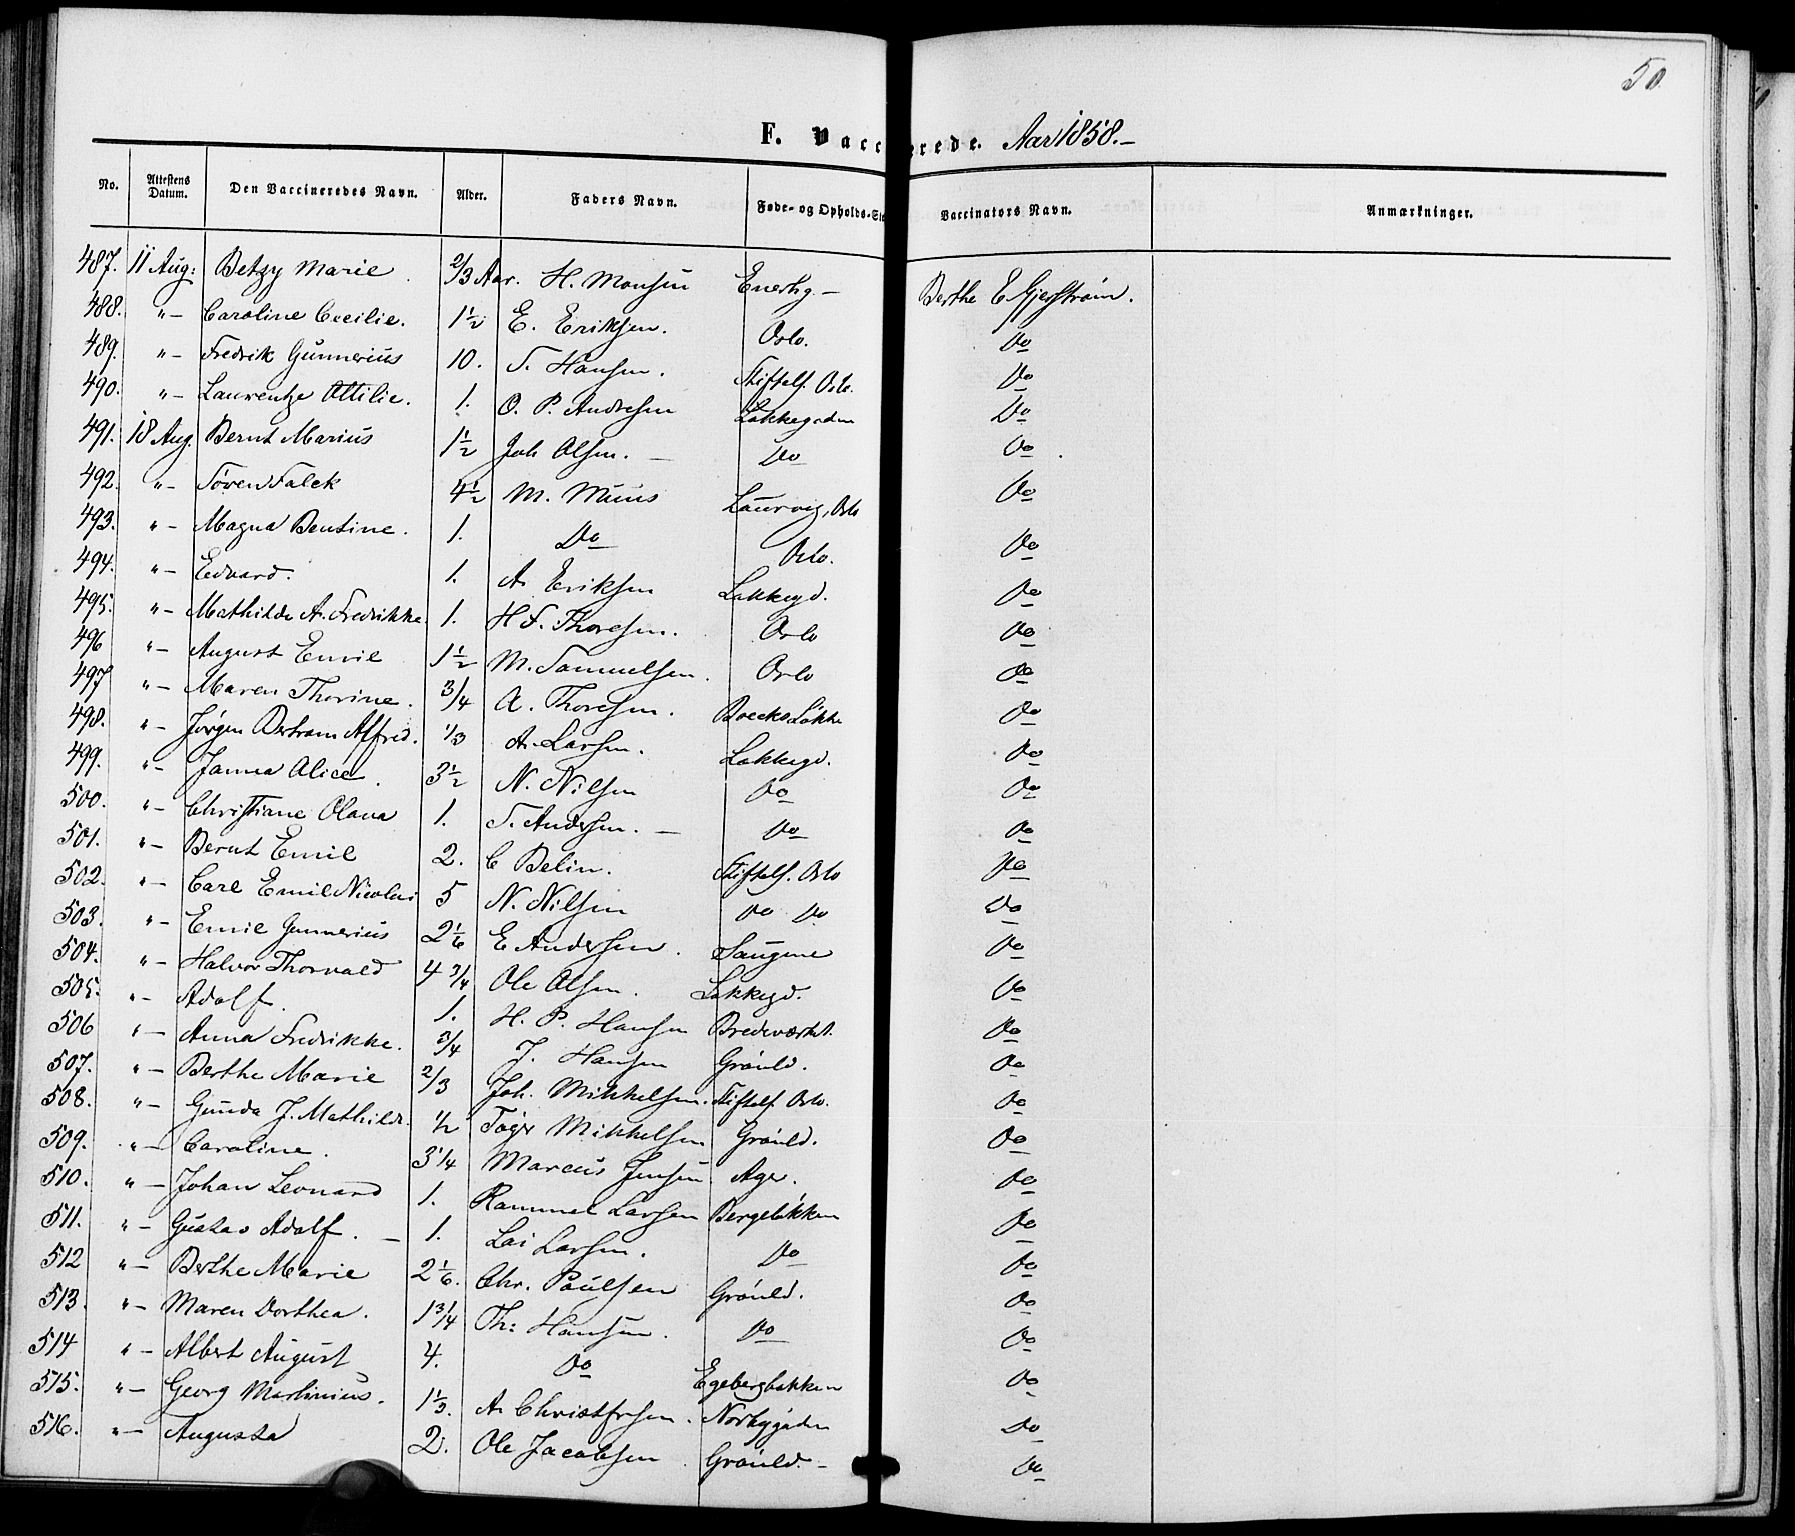 50
F. Vaccinerede. Aar 1858.-
No. Attestens Datum. Den Vaccineredes Navn. Alder. Faders Navn. Føde- og Opholds-St Vaccinators Navn. Anmærkninger.
487. 11 Aug: Betzy Marie 2/3 Aar. H. Monsen Enerhg - Berthe E Gjerstrøm.
488. "- Caroline Cecilie. 1 1/2 E. Eriksen. Oslo. Do
489. "- Fredrik Gunnerius 10. S. Hansen. Stiftels. Oslo. Do
490. "- Laurentze Ottilie. 1. O. P. Andresen Lakkegaden Do
491. 18 Aug. Bernt Marius 1 1/2 Joh Olsen. - Do Do
492. "- Søren Falck 4 1/2 M. Muus Laurvig, Oslo Do
493. "- Magna Bentine. 1. Do Oslo. Do
494. "- Edvard. 1. A. Eriksen Lakkegd. Do
495. "- Mathilde A. Fredrikke 1. H F. Thoresen. Oslo Do
496 "- August Emil 1 1/2 M. Samuelsen. Oslo Do
497 "- Maren Thorine. 3/4 A. Thoresen. Boecks Løkke Do
498. "- Jørgen Bertram Alfred. 1/3 A. Larsen. Lakkegd. Do
499. "- Janna Alice. 3 1/2 N. Nilsen Do Do
500. "- Christiane Olava 1. S. Andersen. - Do Do
501. "- Bernt Emil 2. C Belin. Stiftelf. Oslo Do
502. "- Carl Emil Nicolai 5 N. Nilsen Do Do Do
503. "- Emil Gunnerius 2 1/6 E Andersen. Saugene Do
504. "- Halvor Thorvald 4 3/4 Ole Olsen. Lakkegd. Do
505. "- Adolf. 1. H. P. Hansen Bredeværket. Do
506 "- Anna Fredrikke. 3/4 J. Hansen Grønld. Do
507. "- Berthe Marie 2/3 Joh. Mikkelsen. Stiftelf. Oslo. Do
508. "- Gunda J. Mathilde. 1/2 Tøger Mikkelsen Grønld. Do
509. "- Caroline. 3 1/4 Marcus Jensen Ager. Do
510. "- Johan Leonard 1. Rammel Larsen Bergeløkken Do
511. "- Gustav Adolf. - 1. Lai Larsen. Do Do
512 "- Berthe Marie 2 1/6. Chr. Paulsen Grønld. Do
513. "- Maren Dorthea. 1 3/4 Th: Hansen. Do Do
514 "- Albert August 4. Do Egebergbakken Do
515. "- Georg Martinius. 1 1/3. A. Christfersen. Norbygaden Do
516. "- Augusta 2. Ole Jacobsen Grønld. - Do